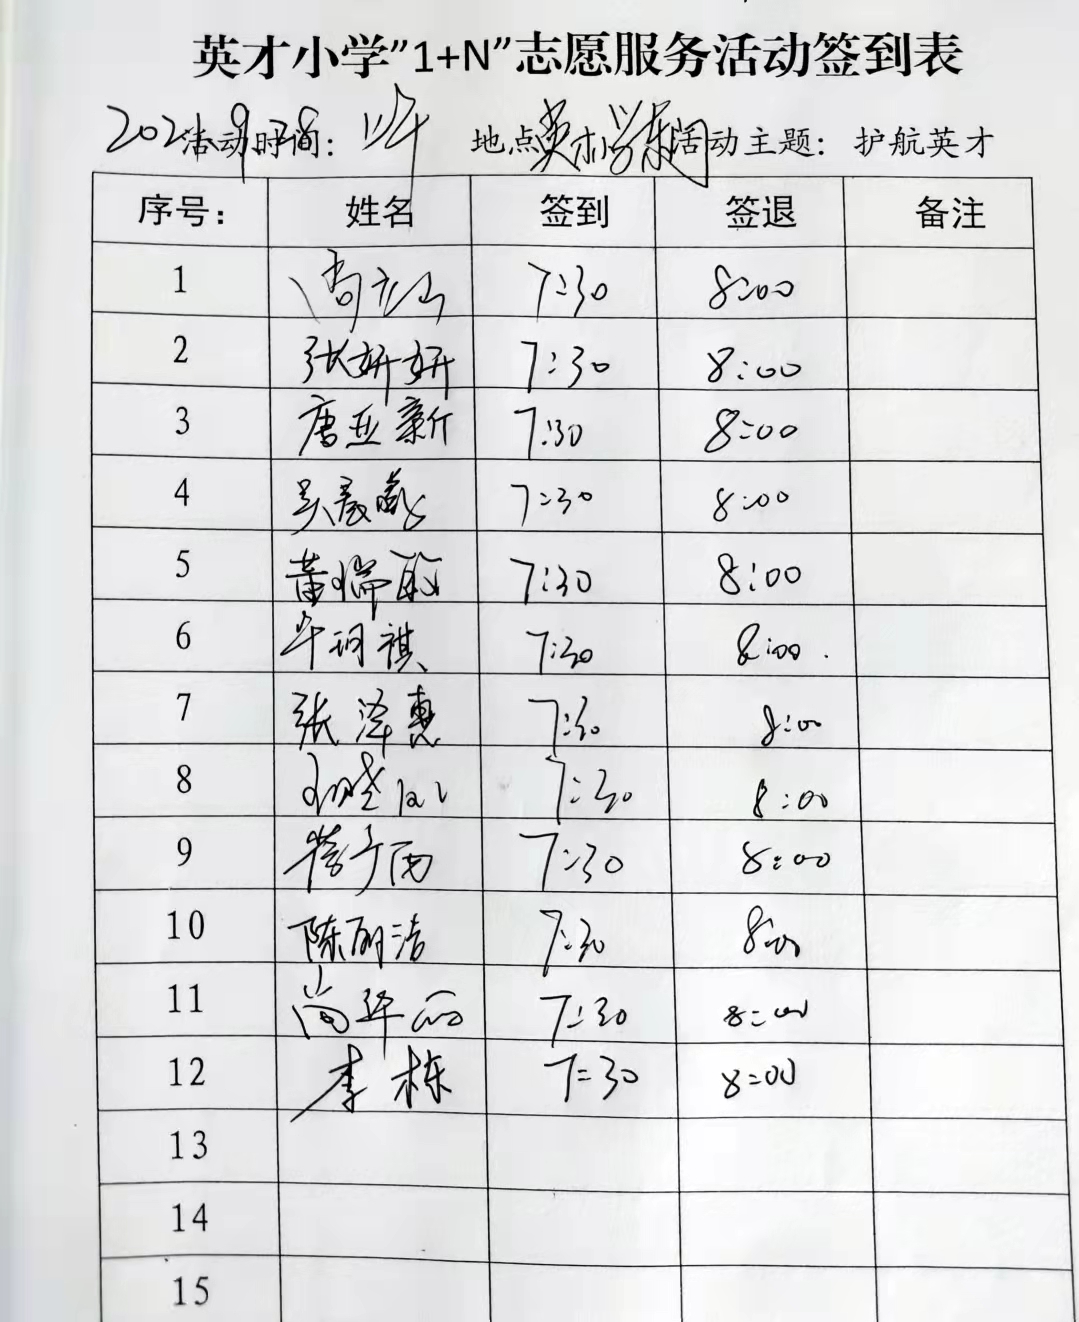 英才小学"1+N"志愿服务活动签到表
2021.9.28 活动时间: 上午 地点 英才小学东门 活动主题: 护航英才
序号: 姓名 签到 签退 备注
1 7:30 8:00
2 张妍妍 7:30 8:00
3 唐亚新 7:30 8:00
4 7:30 8:00
5 7:30 8:00
6 牟珂祺 7:30 8:00
7 张泽惠 7:30 8:00
8 7:30 8:00
9 7:30 8:00
10 陈丽洁 7:30 8:00
11 尚华丽 7:30 8:00
12 李栋 7:30 8:00
13
14
15